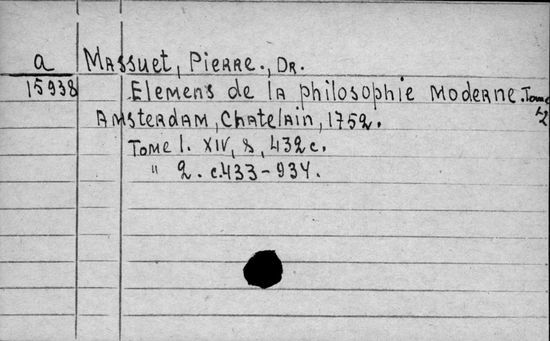 a Massuet, Pierre., Dr.
15938 Elemens de la philosophie moderne. Tome 1-2
Amsterdam, Chatelain, 1752.
Tome 1. XIV, 8, 432 c.
" 2. c.433-934.